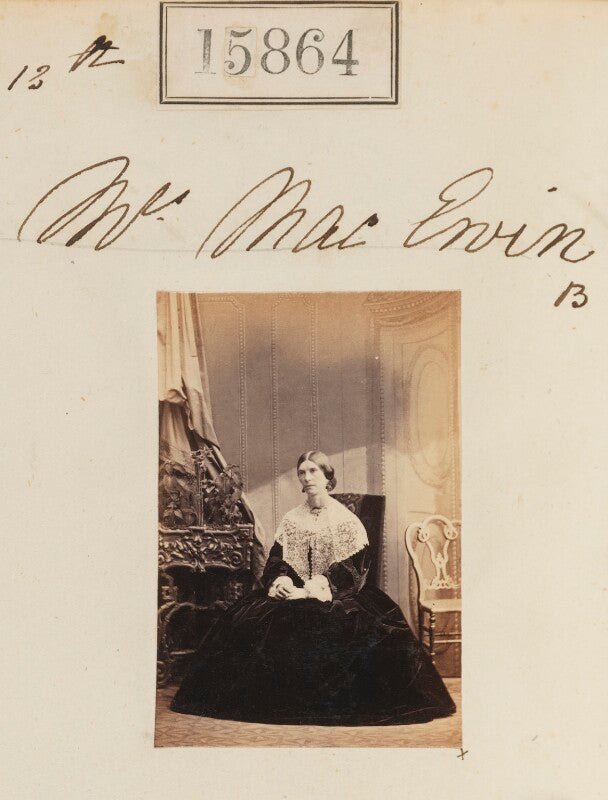 15864
13th
Mrs. Mac Ewin
B
x